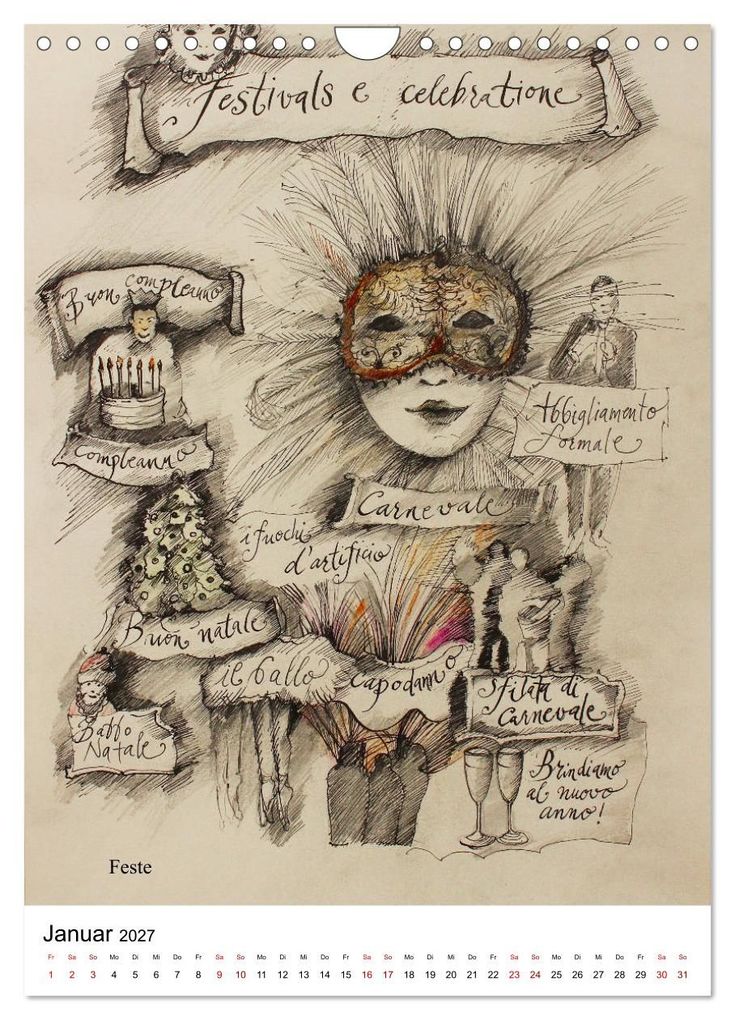 Festivals e celebratione
Buon compleanno
compleanno
Abbigliamento
formale
Carnevale
i fuochi
d'artificio
Buon natale
il ballo
capodanno
Sfilata di
Carnevale
Babbo
Natale
Brindiamo
al nuovo
anno!
Feste
Januar 2027
Fr Sa So Mo Di Mi Do Fr Sa So Mo Di Mi Do Fr Sa So Mo Di Mi Do Fr Sa So Mo Di Mi Do Fr Sa So
1 2 3 4 5 6 7 8 9 10 11 12 13 14 15 16 17 18 19 20 21 22 23 24 25 26 27 28 29 30 31